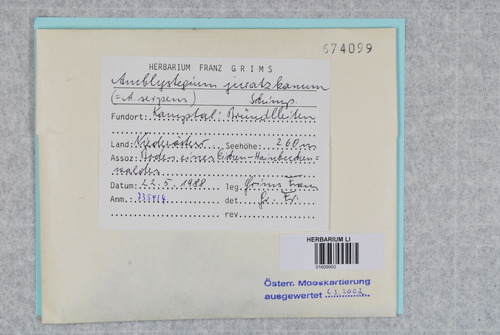 674099
HERBARIUM FRANZ GRIMS
Amblystegium juratzkanum
(= A. serpens) Schimp.
Fundort: Kamptal: Bründlleiten
Land: Niederösterr. Seehöhe: 260 m
Assoz: Boden eines Eichen-Hainbuchen=
waldes
Datum: 22.5.1988 leg. Grims Franz
Anm. det. Gr. Fr.
rev.
HERBARIUM LI
Österr. Mooskartierung
ausgewertet